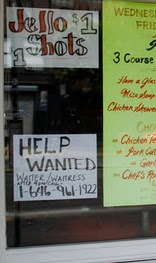 Jello $1
Shots
HELP
WANTED
WAITER/WAITRESS
1-646-961-1922
WEDNES
FRI
3 Course
Have a Glas
Miso Soup
Chicken Skewers
Chicken Te
Pork Cut
Garli
Chef's